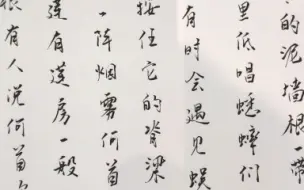 的泥墙根一带
里低唱蟋蟀们
有时会遇见蜈
按住它的脊梁
阵烟雾何首
莲有莲房一般
有人说何首